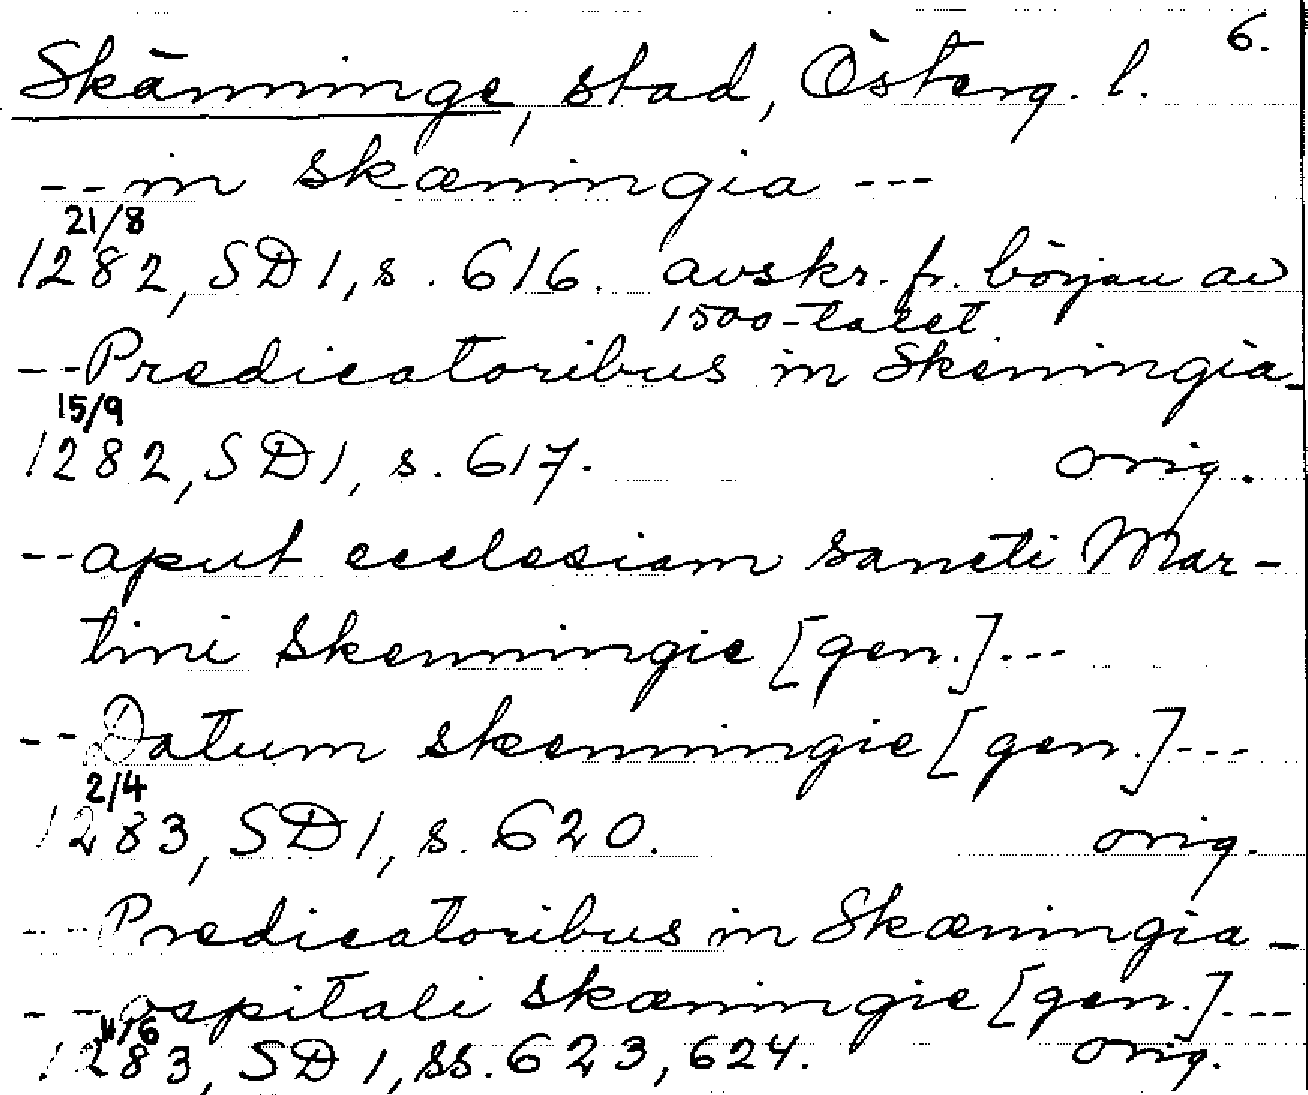 6.
Skänninge, stad, Österg. l.
-- in skæningia ---
21/8
1282, SD 1, s. 616. avskr. fr. början av
1500-talet
-- Predicatoribus in Skeningia -
15/9
1282, SD 1, s. 617. orig.
-- aput ecclesiam sancti Mar-
tini skenningie [gen.] ---
-- Datum skenningie [gen.] ---
2/4
1283, SD 1, s. 620. orig.
--- Predicatoribus in Skæningia -
-- ospitali skæningie [gen.] ---
11/6
1283, SD 1, ss. 623, 624. orig.